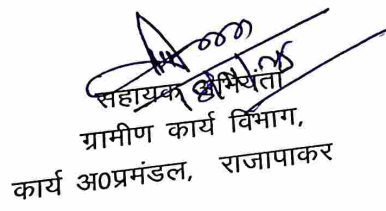 सहायक अभियंता
ग्रामीण कार्य विभाग,
कार्य अ0प्रमंडल, राजापाकर